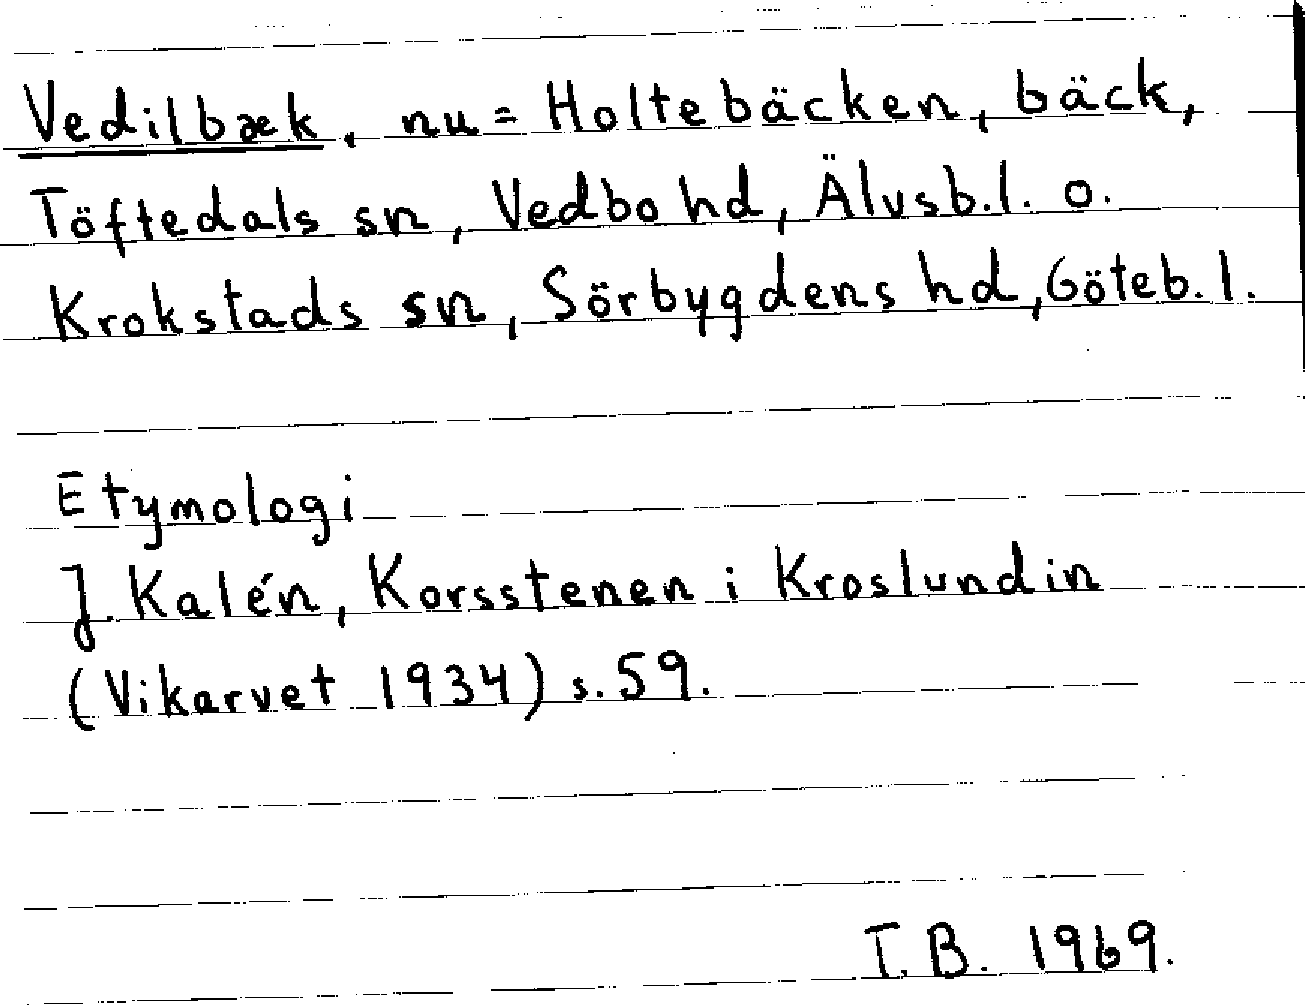 Vedilbæk. nu = Holtebäcken, bäck,
Töftedals sn, Vedbo hd, Älvsb.l. o.
Krokstads sn, Sörbygdens hd, Göteb.l.
Etymologi
J. Kalén, Korsstenen i Kroslundin
(Vikarvet 1934) s. 59.
T.B. 1969.